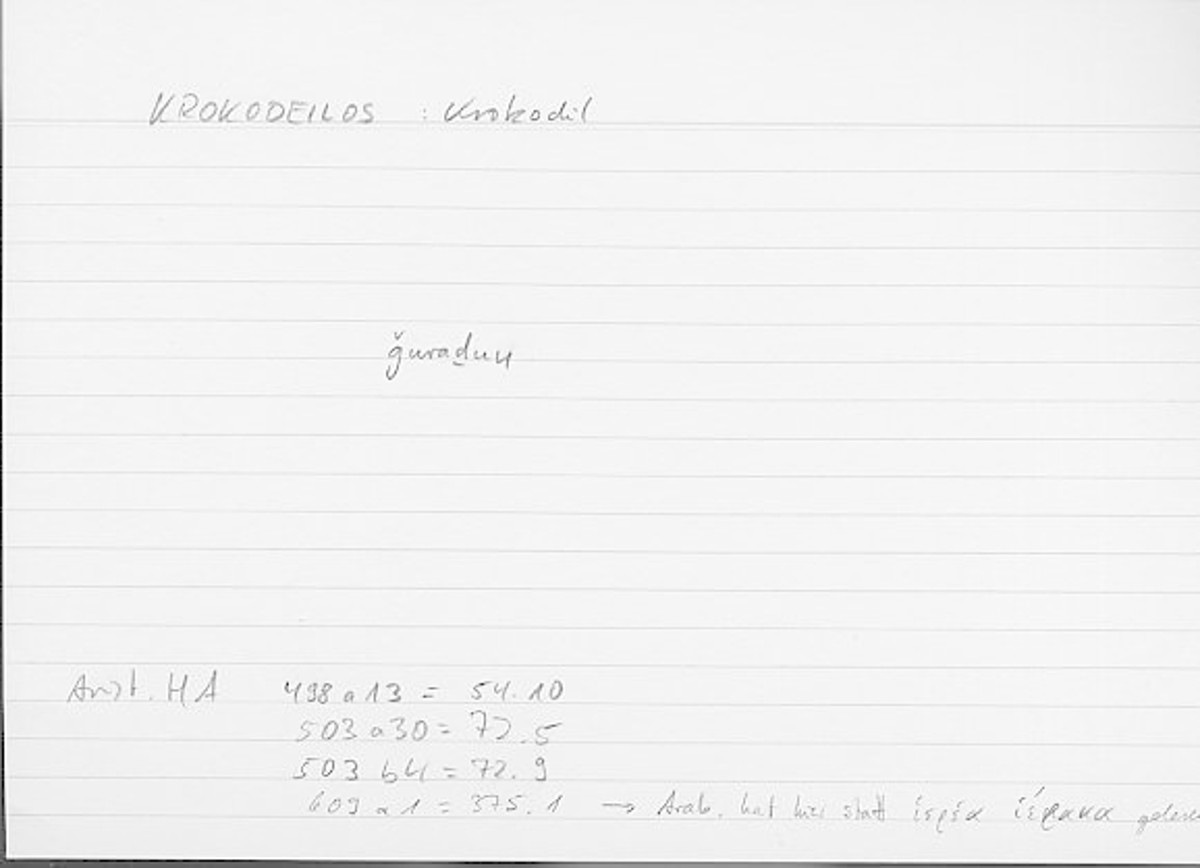 KROKODEILOS : Krokodil
ǧuraḏun
Arist. HA 498 a 13 = 54.10
503 a 30 = 72.5
503 b 4 = 72.9
609 a 1 = 375.1 → Arab. hat hier statt ἱερέα ἱέρακα